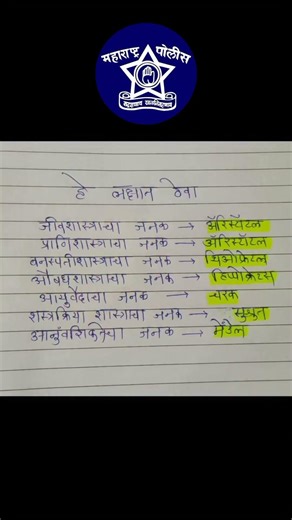 महाराष्ट्र पोलीस
सद्रक्षणाय खलनिग्रहणाय
हे लक्षात ठेवा
जीवशास्त्राचा जनक → ॲरिस्टॉटल
प्राणिशास्त्राचा जनक → ॲरिस्टॉटल
वनस्पतीशास्त्राचा जनक → थिओफ्रेस्टल
औषधशास्त्राचा जनक → हिप्पोक्रेटस
आयुर्वेदाचा जनक → चरक
शस्त्रक्रिया शास्त्राचा जनक → सुश्रुत
आनुवंशिकतेचा जनक → मेंडेल